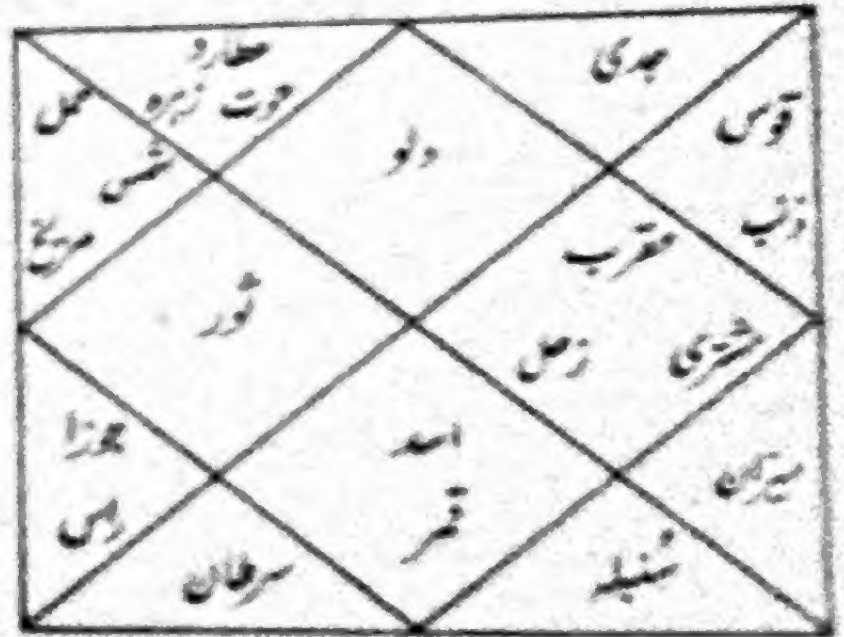 جدی
عطارد
حوت زہرہ
حمل
شمس
مریخ
دلو
قوس
ذنب
عقرب
مشتری
زحل
ثور
جوزا
راس
اسد
قمر
میزان
سرطان
سُنبلہ